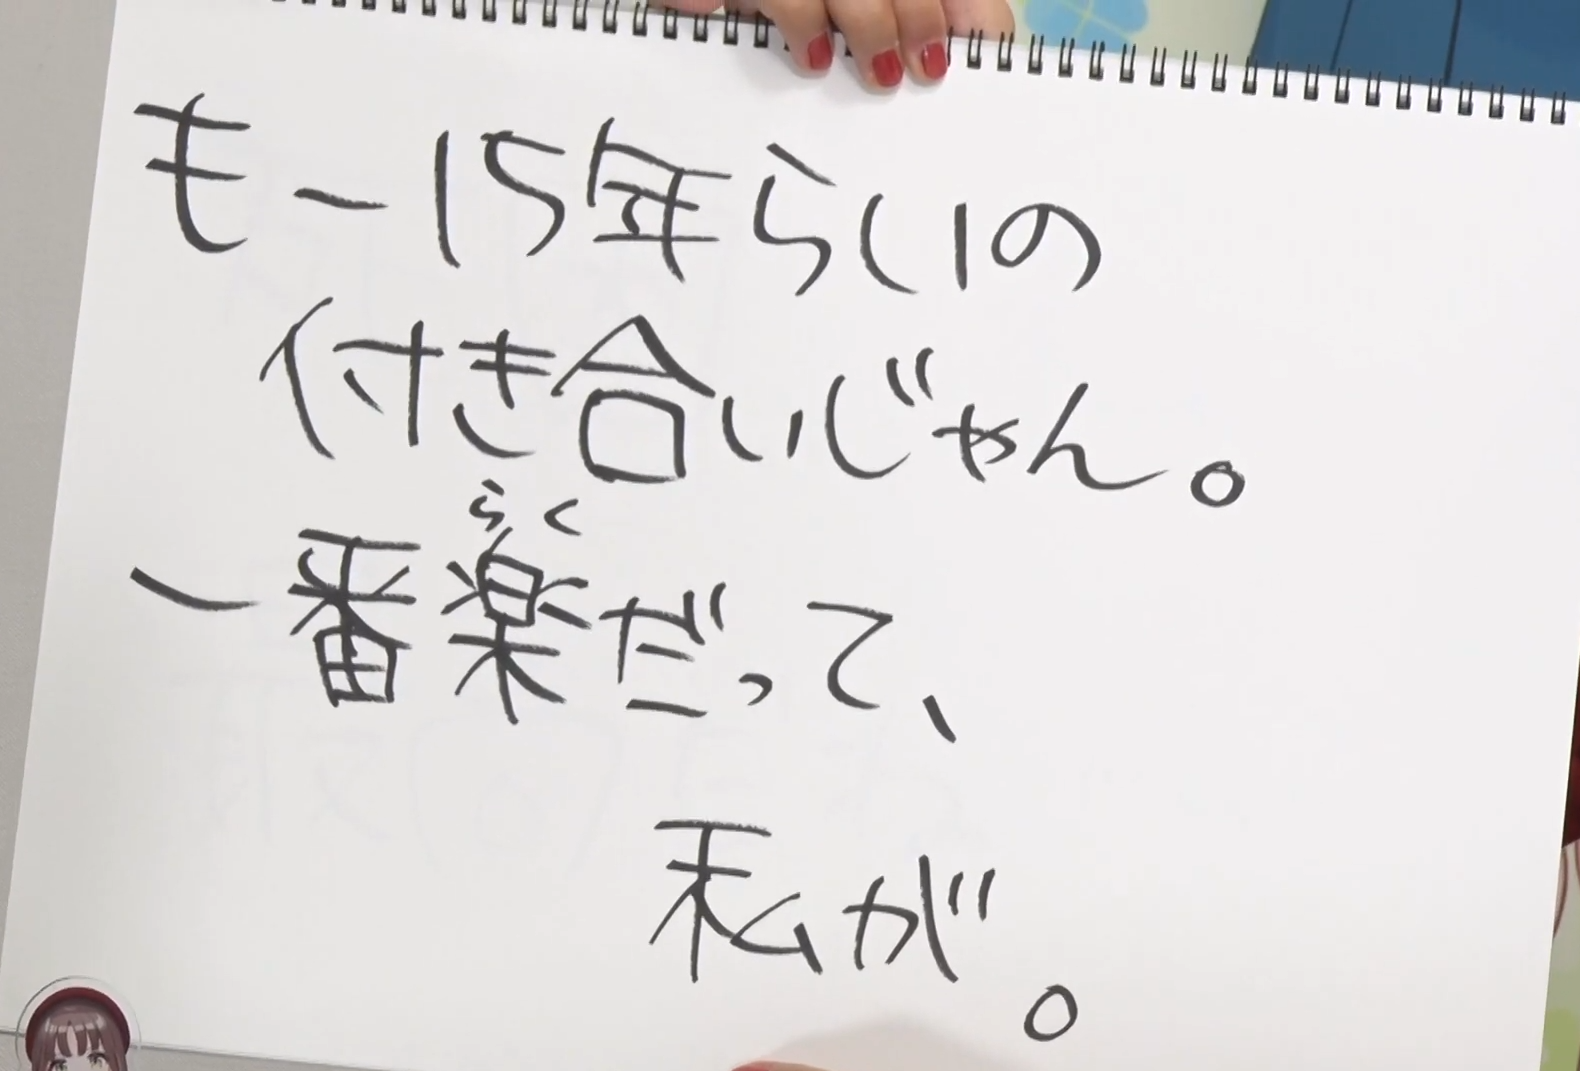 モー15年らいの
付き合いじゃん。
らく
一番楽だって、
私が。